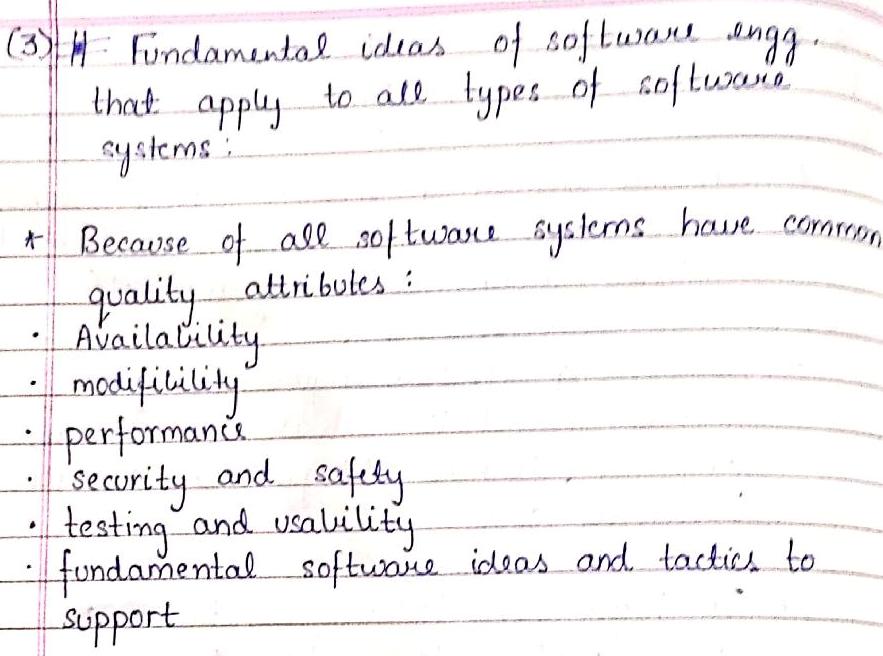 (3) H Fundamental ideas of software engg.
that apply to all types of software
systems :
* Because of all software systems have common
quality attributes :
· Availability
· modifibility
· performance
· security and safety
· testing and usability
· fundamental software ideas and tactics to
support